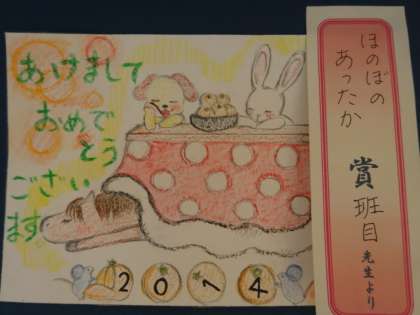 あけまして
おめで
とう
ござい
ます
2014
ほのぼの
あったか
賞
班目
先生より